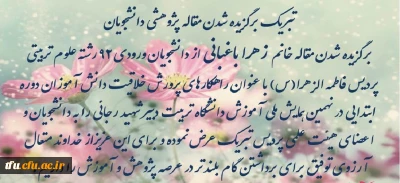 تبریک برگزیده شدن مقاله پژوهشی دانشجویان
برگزیده شدن مقاله خانم زهرا باغبانی از دانشجویان ورودی ۹۲ رشته علوم تربیتی
پردیس فاطمه الزهرا (س) با عنوان راهکارهای پرورش خلاقیت دانش آموزان دوره
ابتدایی در نهمین همایش ملی آموزش دانشگاه تربیت دبیر شهید رجایی را به دانشجویان و
اعضای هیئت علمی پردیس تبریک عرض نموده و برای این عزیز از خداوند متعال
آرزوی توفیق برای برداشتن گام بلندتر در عرصه پژوهش و آموزش را
dfu.cfu.ac.ir